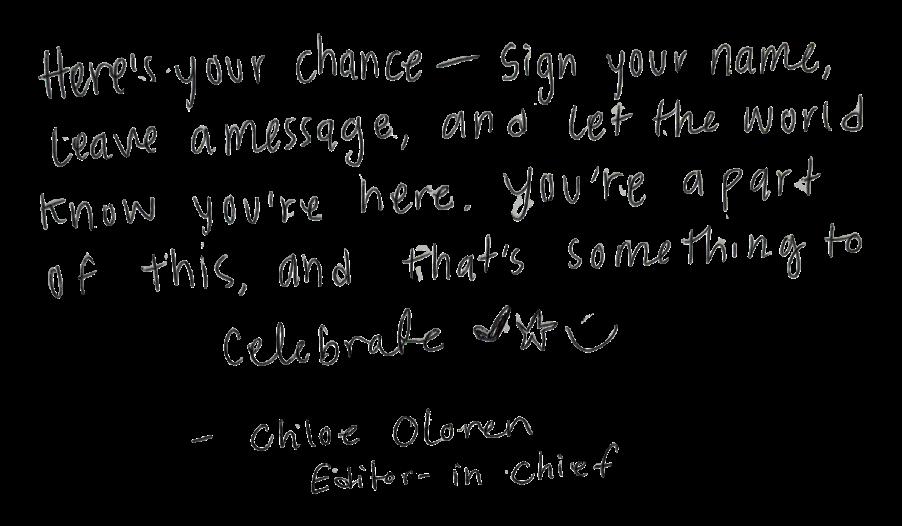 Here's your chance — sign your name,
leave a message, and let the world
know you're here. You're a part
of this, and that's something to
celebrate
- Chloe Oloren
Editor-in Chief